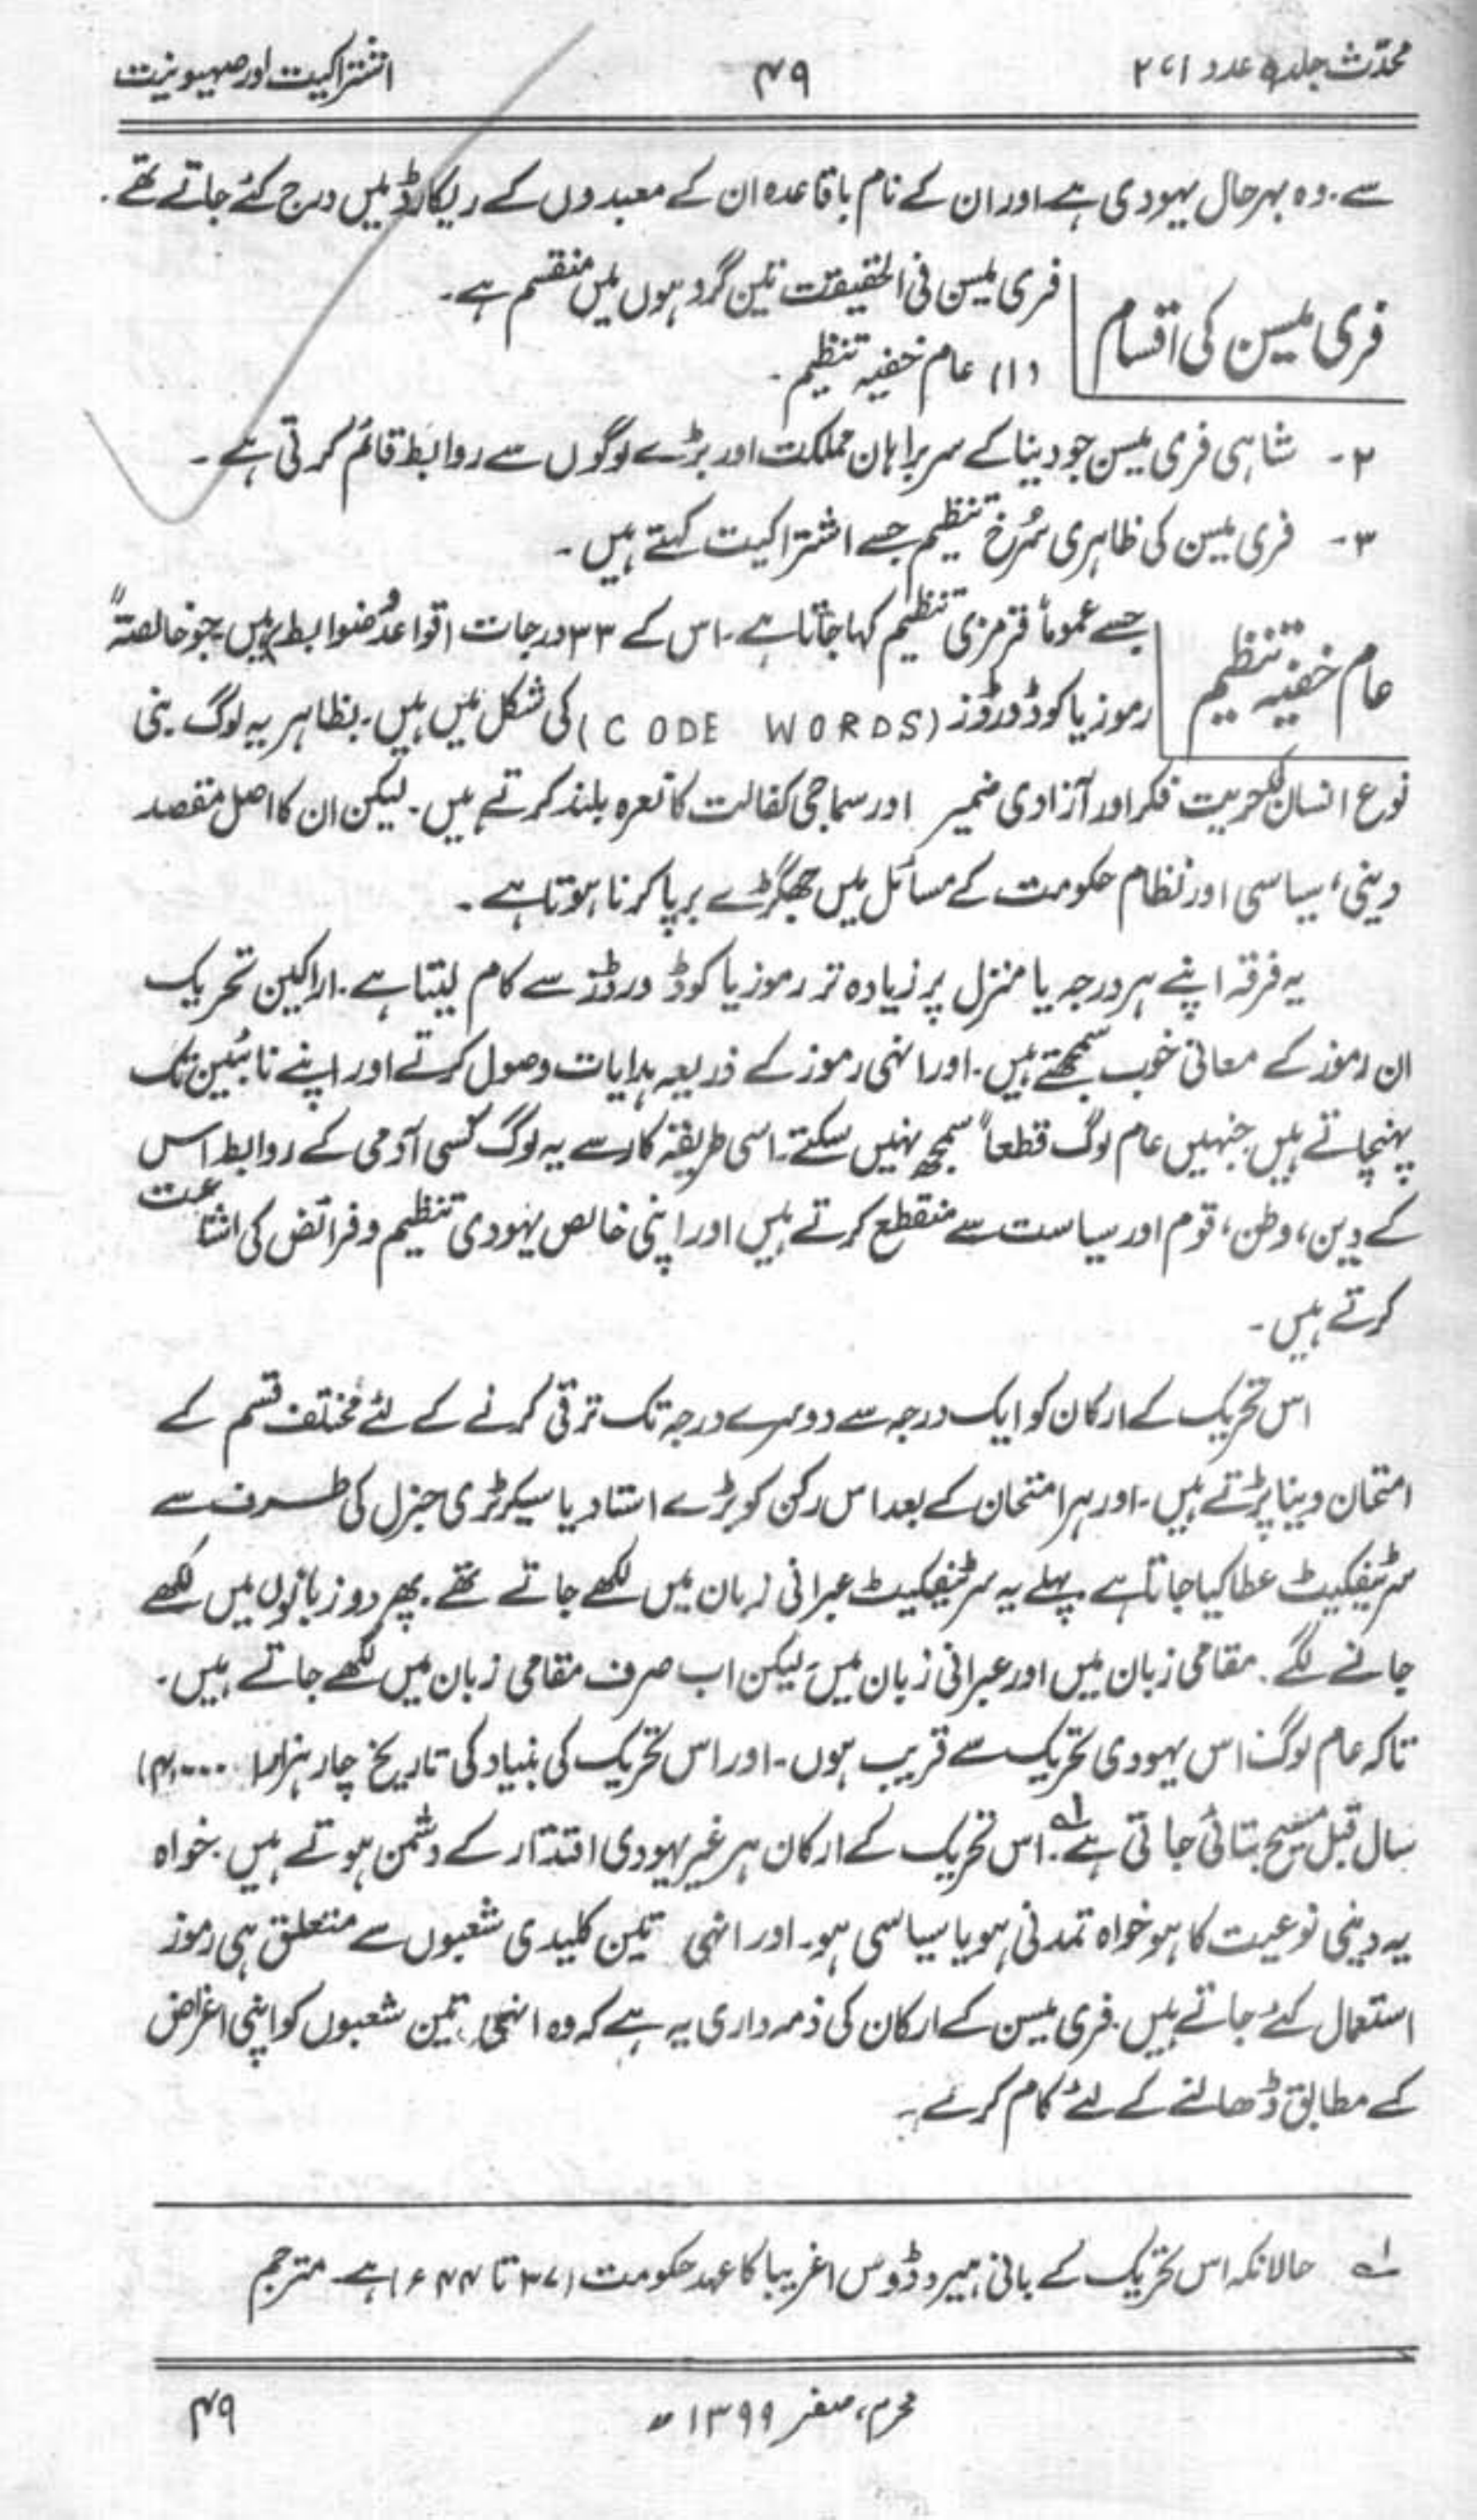 محدّث جلد ۹ عدد ۲،۱
۴۹
اشتراکیت اور صیہونیت
سے . وہ بہرحال یہودی ہے اور ان کے نام باقاعدہ ان کے معبدوں کے ریکارڈ میں درج کئے جاتے تھے .
فری میسن کی اقسام
فری میسن فی الحقیقت تین گروہوں میں منقسم ہے ۔
(۱) عام خفیہ تنظیم ۔
۲- شاہی فری میسن جو دنیا کے سربراہان مملکت اور بڑے لوگوں سے روابط قائم کرتی ہے ۔
۳- فری میسن کی ظاہری سُرخ تنظیم جسے اشتراکیت کہتے ہیں ۔
عام خفیہ تنظیم
جسے عموماً قرمزی تنظیم کہا جاتا ہے ۔ اس کے ۳۳ درجات (قواعد و ضوابط) ہیں جو خالصتہً
رموز یا کوڈ ورڈوز (CODE WORDS) کی شکل میں ہیں ۔ بظاہر یہ لوگ بنی
نوع انسان کی حریت فکر اور آزادی ضمیر اور سماجی کفالت کا نعرہ بلند کرتے ہیں ۔ لیکن ان کا اصل مقصد
دینی، سیاسی اور نظام حکومت کے مسائل میں جھگڑے برپا کرنا ہوتا ہے ۔
یہ فرقہ اپنے ہر درجہ یا منزل پر زیادہ تر رموز یا کوڈ ورڈز سے کام لیتا ہے . اراکین تحریک
ان رموز کے معانی خوب سمجھتے ہیں . اور انہی رموز کے ذریعہ ہدایات وصول کرتے اور اپنے نائبین تک
پہنچاتے ہیں جنہیں عام لوگ قطعاً سمجھ نہیں سکتے ۔ اسی طریقہ کار سے یہ لوگ کسی آدمی کے روابط اس
کے دین، وطن، قوم اور سیاست سے منقطع کرتے ہیں اور اپنی خالص یہودی تنظیم و فرائض کی اشاعت
کرتے ہیں ۔
اس تحریک کے ارکان کو ایک درجہ سے دوسرے درجہ تک ترقی کرنے کے لئے مختلف قسم کے
امتحان دینا پڑتے ہیں ۔ اور ہر امتحان کے بعد اس رکن کو بڑے استاد یا سیکرٹری جنرل کی طرف سے
سرٹیفکیٹ عطا کیا جاتا ہے پہلے یہ سرٹیفکیٹ عبرانی زبان میں لکھے جاتے تھے . پھر دو زبانوں میں لکھے
جانے لگے . مقامی زبان میں اور عبرانی زبان میں لیکن اب صرف مقامی زبان میں لکھے جاتے ہیں ۔
تاکہ عام لوگ اس یہودی تحریک سے قریب ہوں ۔ اور اس تحریک کی بنیاد کی تاریخ چار ہزار (۴۰۰۰)
سال قبل مسیح بتائی جاتی ہے ۱ . اس تحریک کے ارکان ہر غیر یہودی اقتدار کے دشمن ہوتے ہیں . خواہ
یہ دینی نوعیت کا ہو خواہ تمدنی ہو یا سیاسی ہو ۔ اور انہی تین کلیدی شعبوں سے متعلق ہی رموز
استعمال کئے جاتے ہیں . فری میسن کے ارکان کی ذمہ داری یہ ہے کہ وہ انہی تین شعبوں کو اپنی اغراض
کے مطابق ڈھالنے کے لئے کام کرے ۔
۱ حالانکہ اس تحریک کے بانی ہیروڈوس اغریبا کا عہد حکومت (۳۷ تا ۴۴ء) ہے ۔ مترجم
محرم، صفر ۱۳۹۹ھ
۴۹